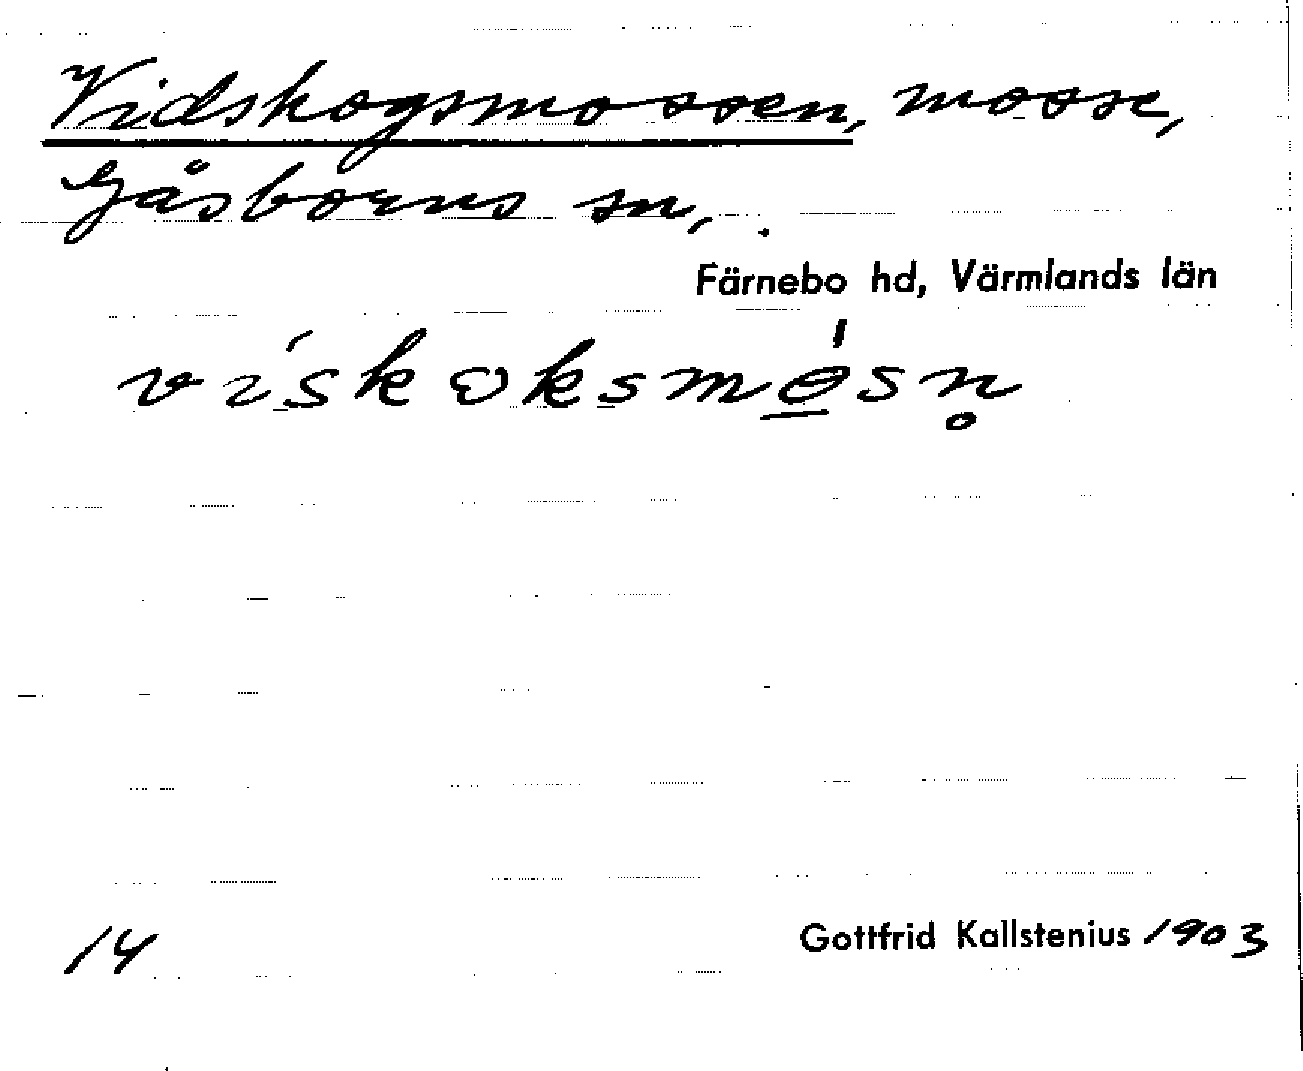 Vidskogsmossen, mosse,
Gåsborns sn,
Färnebo hd, Värmlands län
vískʊksmɵ̲́sn̥
14
Gottfrid Kallstenius 1903